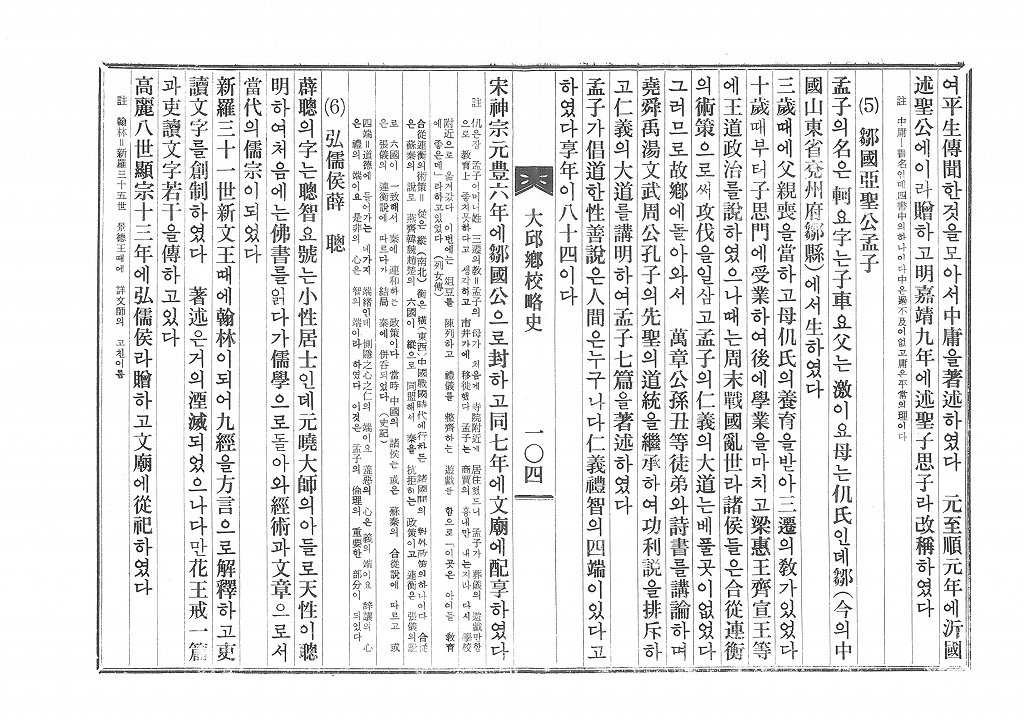 여平生傳聞한것을모아서中庸을著述하였다 元至順元年에沂國
述聖公에이라贈하고明嘉靖九年에述聖子思子라改稱하였다
註 中庸=書名인데四書中의하나이다中은過不及이없고庸은平常의理이다
(5) 鄒國亞聖公孟子
孟子의名은軻요字는子車요父는激이요母는仉氏인데鄒(今의中
國山東省兗州府鄒縣)에서生하였다
三歲때에父親喪을當하고母仉氏의養育을받아三遷의敎가있었다
十歲때부터子思門에受業하여後에學業을마치고梁惠王齊宣王等
에王道政治를說하였으나때는周末戰國亂世라諸侯들은合從連衡
의術策으로써攻伐을일삼고孟子의仁義의大道는베풀곳이없었다
그러므로故鄕에돌아와서 萬章公孫丑等徒弟와詩書를講論하며
堯舜禹湯文武周公孔子의先聖의道統을繼承하여功利說을排斥하
고仁義의大道를講明하여孟子七篇을著述하였다
孟子가倡道한性善說은人間은누구나다仁義禮智의四端이있다고
하였다享年이八十四이다
大邱鄕校略史 一〇四
宋神宗元豊六年에鄒國公으로封하고同七年에文廟에配享하였다
註 仉은장 孟子어머니姓 三遷의敎=孟子의 母가 처음에 寺院附近에 居住했드니 孟子가 葬儀의 遊戱만한
고 敎育上 좋치못하다고 생각하고 市井가에 移徙했다 孟子는 商賈의 흉내만 내는지라 다시 學校
附近으로 옴겨갔다 이번에는 俎豆를 陳列하고 禮儀를 整齊하는 遊戱를 함으로「이곳은 아이들 敎育
에 좋은데」라하고있었다(列女傳)
合從連衡의術策=從은縱(南北) 衡은橫(東西)中國戰國時代에行하든 諸國間의 對外政策의하나이다 合從
은 蘇秦의說 燕齊韓魏趙楚의 六國이 縱으로 同盟해서 秦을 抗拒하는 政策이고 連衡은 張儀의說
로 六國이 一致해서 秦에 連和하는 政策이다 當時 中國의 諸侯는 或은 蘇秦의 合從說에 따르고 或
은 張儀의 連衡說에 따르다가 結局 秦에 併吞되었다(史記)
四端=道德에 들어가는 네가지 端緖인데 惻隱之心之仁의 端이요 羞惡의 心은 義의 端이요 辭讓의 心
은 禮의 端이요 是非의 心은 智의 端이라 하였다 이것은 孟子의 倫理의 重要한 部分이 되었다
(6) 弘儒侯薛 聰
薛聰의字는聰智요號는小性居士인데元曉大師의아들로天性이聰
明하여처음에는佛書를읽다가儒學으로돌아와經術과文章으로서
當代의儒宗이되었다
新羅三十一世新文王때에翰林이되어九經을方言으로解釋하고吏
讀文字를創制하였다 著述은거의湮滅되었으나다만花王戒一篇
과吏讀文字若干을傳하고있다
高麗八世顯宗十三年에弘儒侯라贈하고文廟에從祀하였다
註 翰林=新羅三十五世 景德王때에 詳文師의 고친이름